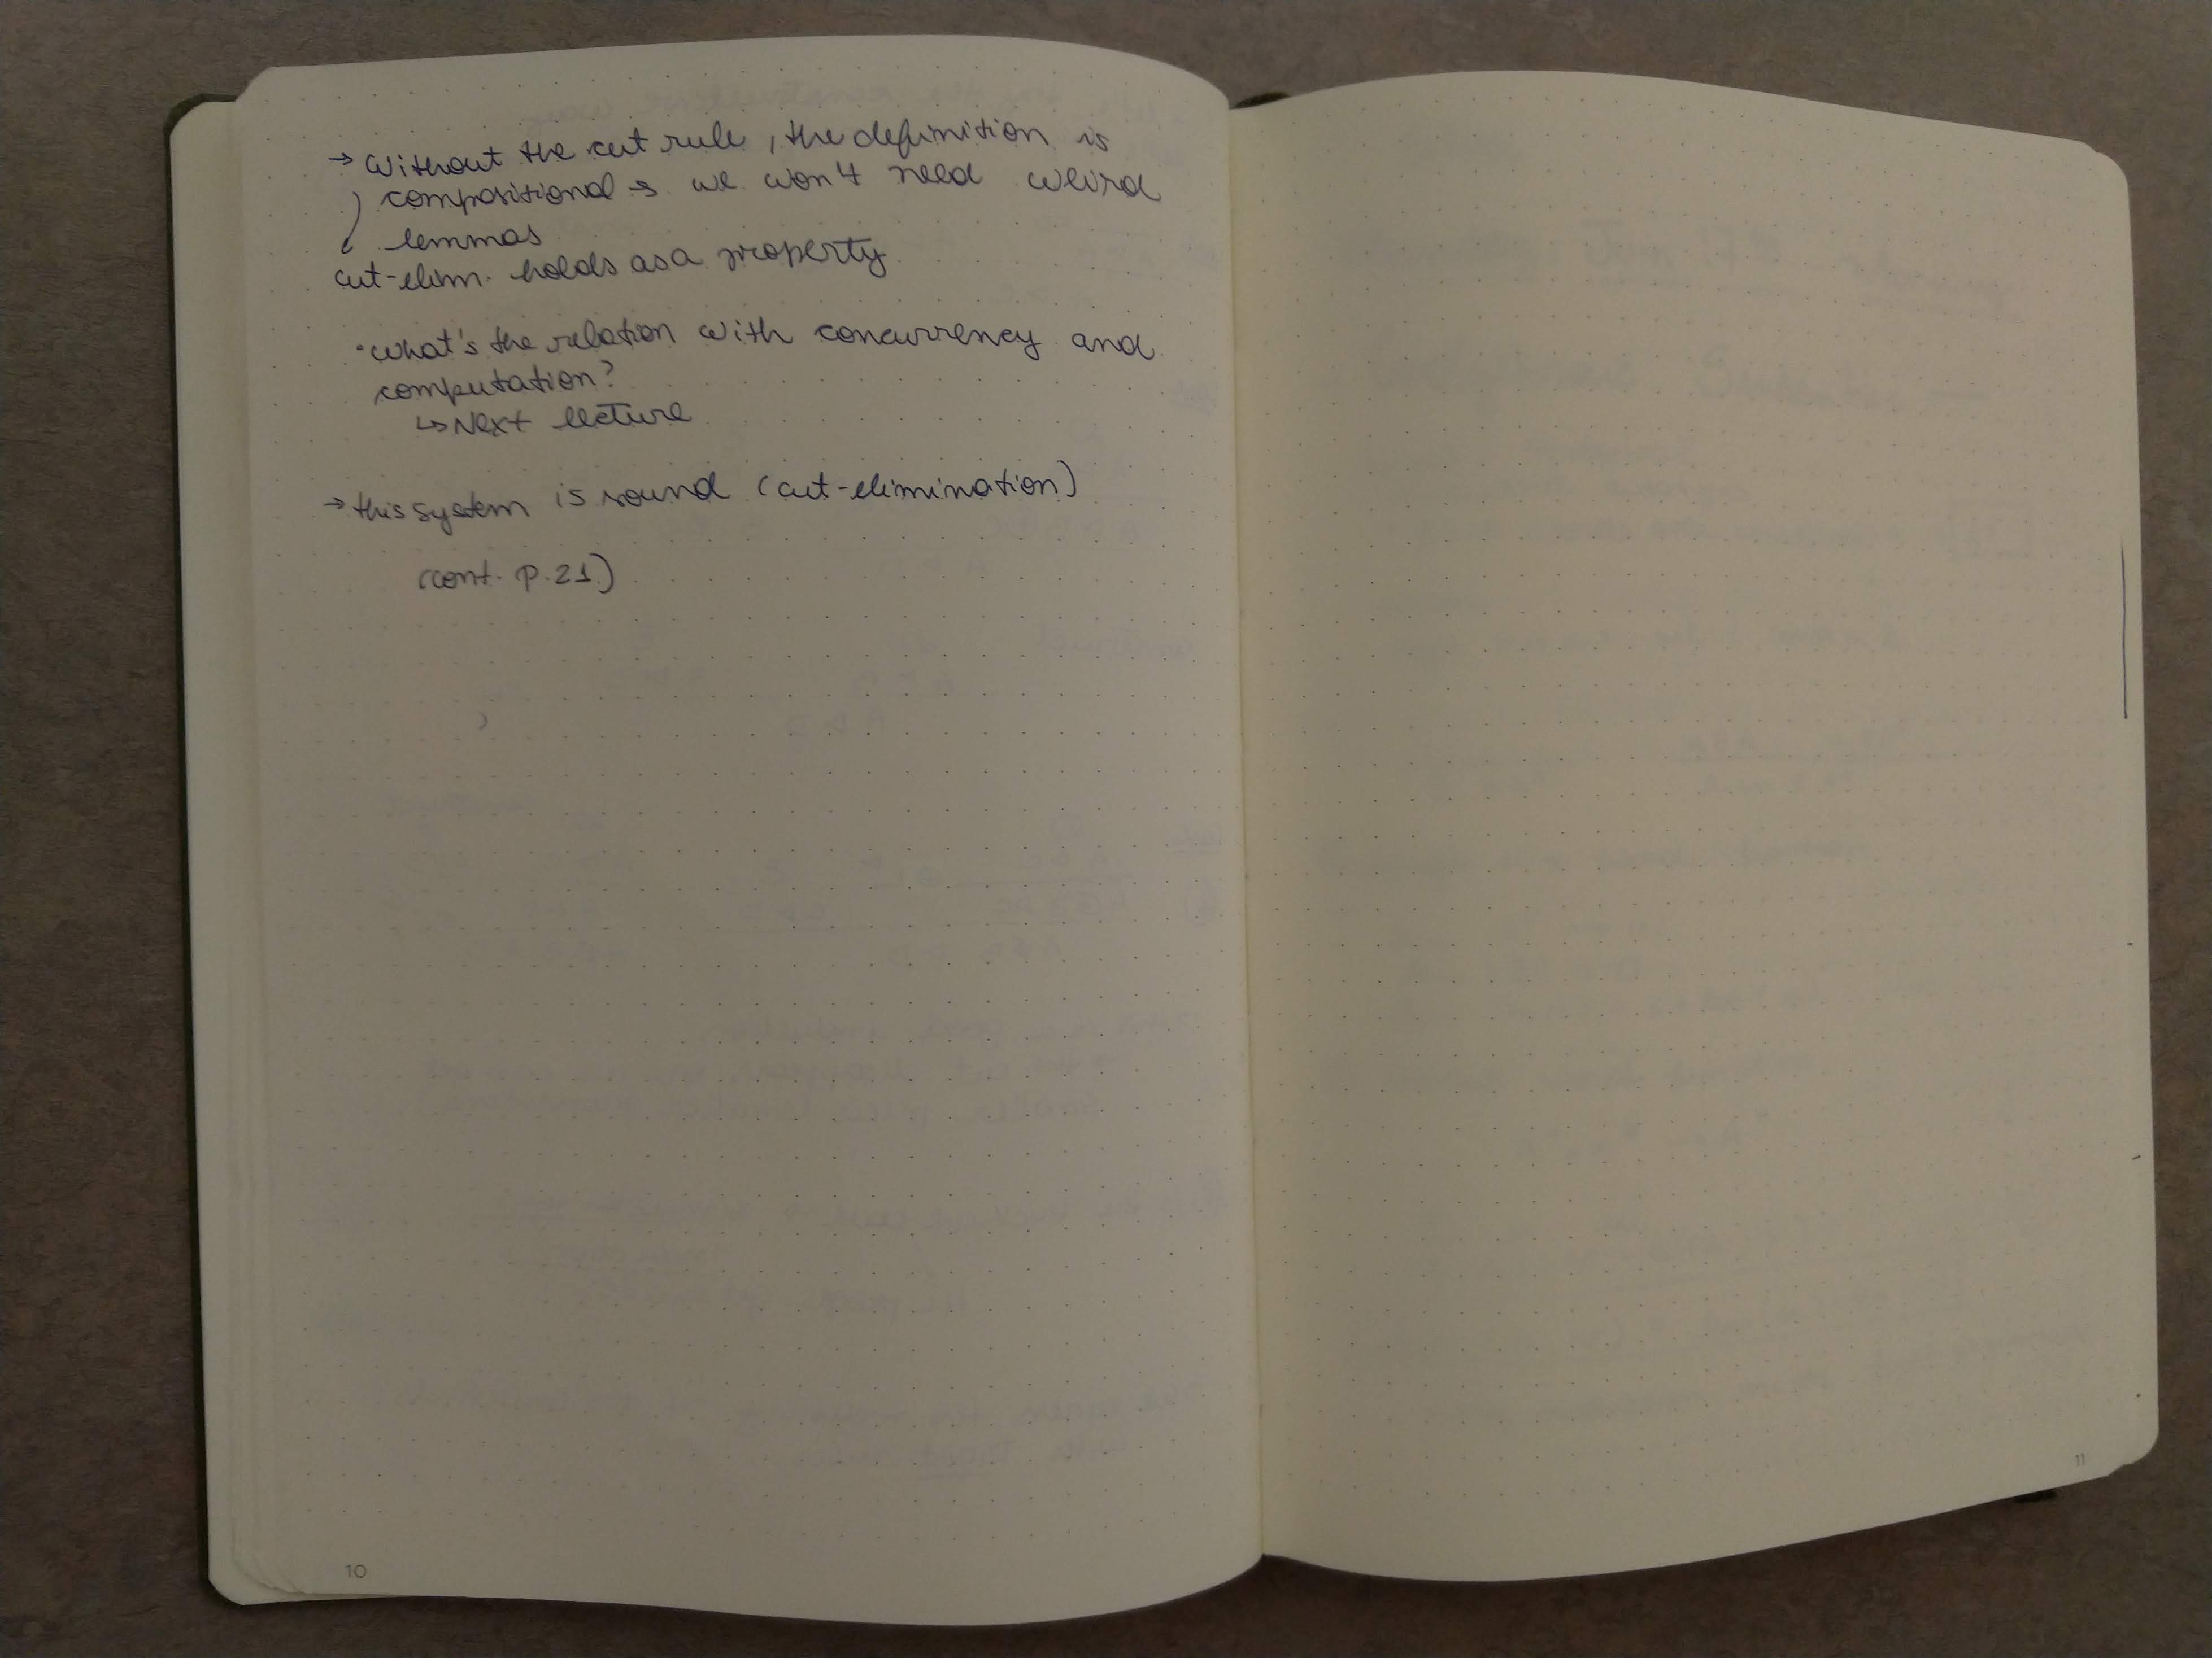 → Without the cut rule, the definition is
compositional → we won't need weird
lemmas
cut-elim. holds as a property
• what's the relation with concurrency and
computation?
↳ Next lecture
→ this system is sound (cut-elimination)
(cont. p. 21)
10
11